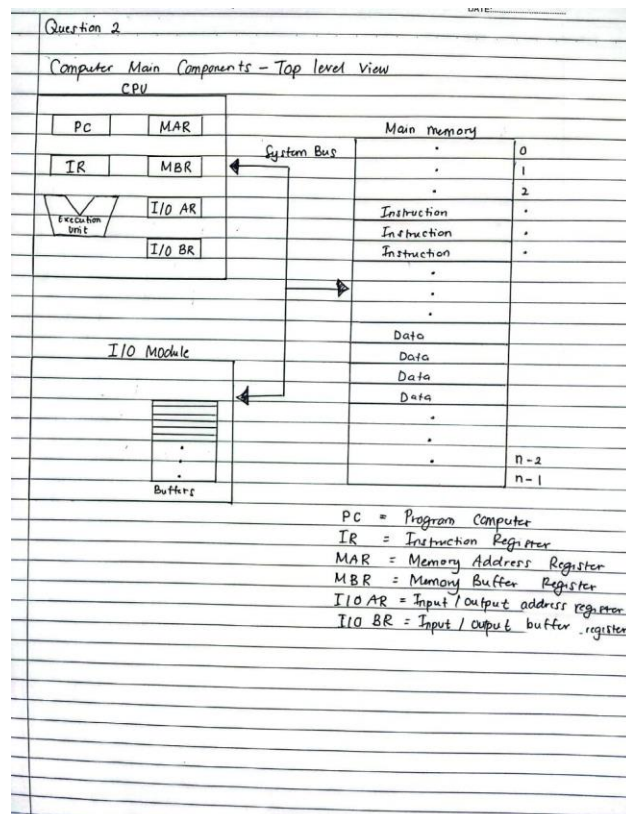 DATE:
Question 2
Computer Main Components - Top level View
CPU
PC MAR
IR MBR
Execution
Unit
I/O AR
I/O BR
System Bus
Main memory
0
1
2
Instruction
Instruction
Instruction
Data
Data
Data
Data
n-2
n-1
I/O Module
Buffers
PC = Program Computer
IR = Instruction Register
MAR = Memory Address Register
MBR = Memory Buffer Register
I/O AR = Input / output address register
I/O BR = Input / output buffer register